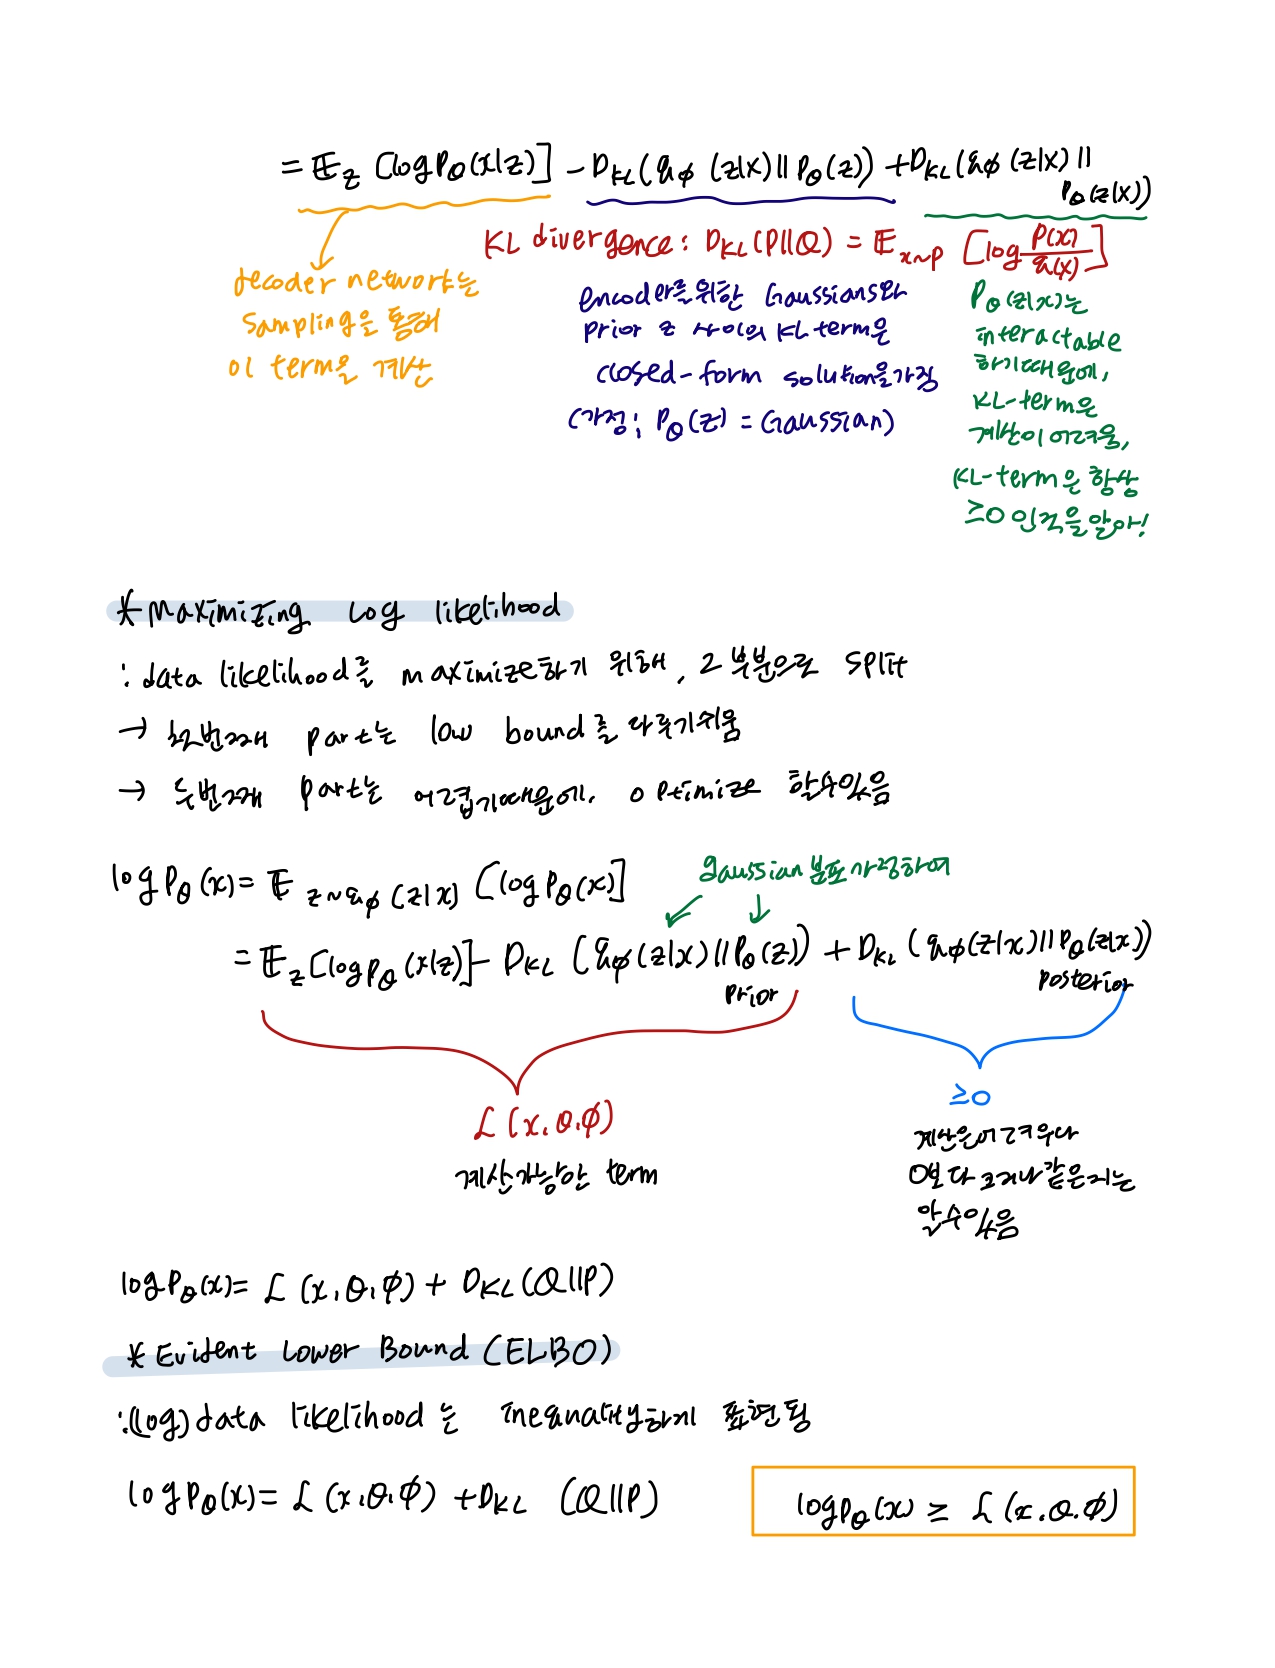 = 𝔼_z [log P_θ(x|z)] − D_KL(q_φ(z|x) || P_θ(z)) + D_KL(q_φ(z|x) ||
P_θ(z|x))
KL divergence : D_KL(P||Q) = 𝔼_x~p [log P(x)/q(x)]
decoder network는
sampling을 통해
이 term을 계산
encoder를위한 Gaussians와
prior z 사이의 KL term은
closed-form solution을가짐
(가정; P_θ(z) = Gaussian)
P_θ(z|x)는
interactable
하기때문에,
KL-term은
계산이 어려움,
KL-term은 항상
≥0 인것을알아!
* Maximizing Log likelihood
: data likelihood를 maximize하기 위해, 2부분으로 split
→ 첫번째 part는 low bound를 다루기쉬움
→ 두번째 part는 어렵기때문에, optimize 할수있음
gaussian 분포 가정하에
log P_θ(x) = 𝔼_z~q_φ(z|x) [log P_θ(x)]
= 𝔼_z [log P_θ(x|z)] − D_KL (q_φ(z|x) || P_θ(z)) + D_KL (q_φ(z|x) || P_θ(z|x))
prior
posterior
L (x, θ, φ)
계산가능한 term
≥0
계산은어려우나
0보다 크거나같은지는
알수있음
log P_θ(x) = L (x, θ, φ) + D_KL (Q||P)
* Evident Lower Bound (ELBO)
: (log) data likelihood 는 inequality하게 표현됨
log P_θ(x) = L (x, θ, φ) + D_KL (Q||P)
log P_θ(x) ≥ L (x, θ, φ)